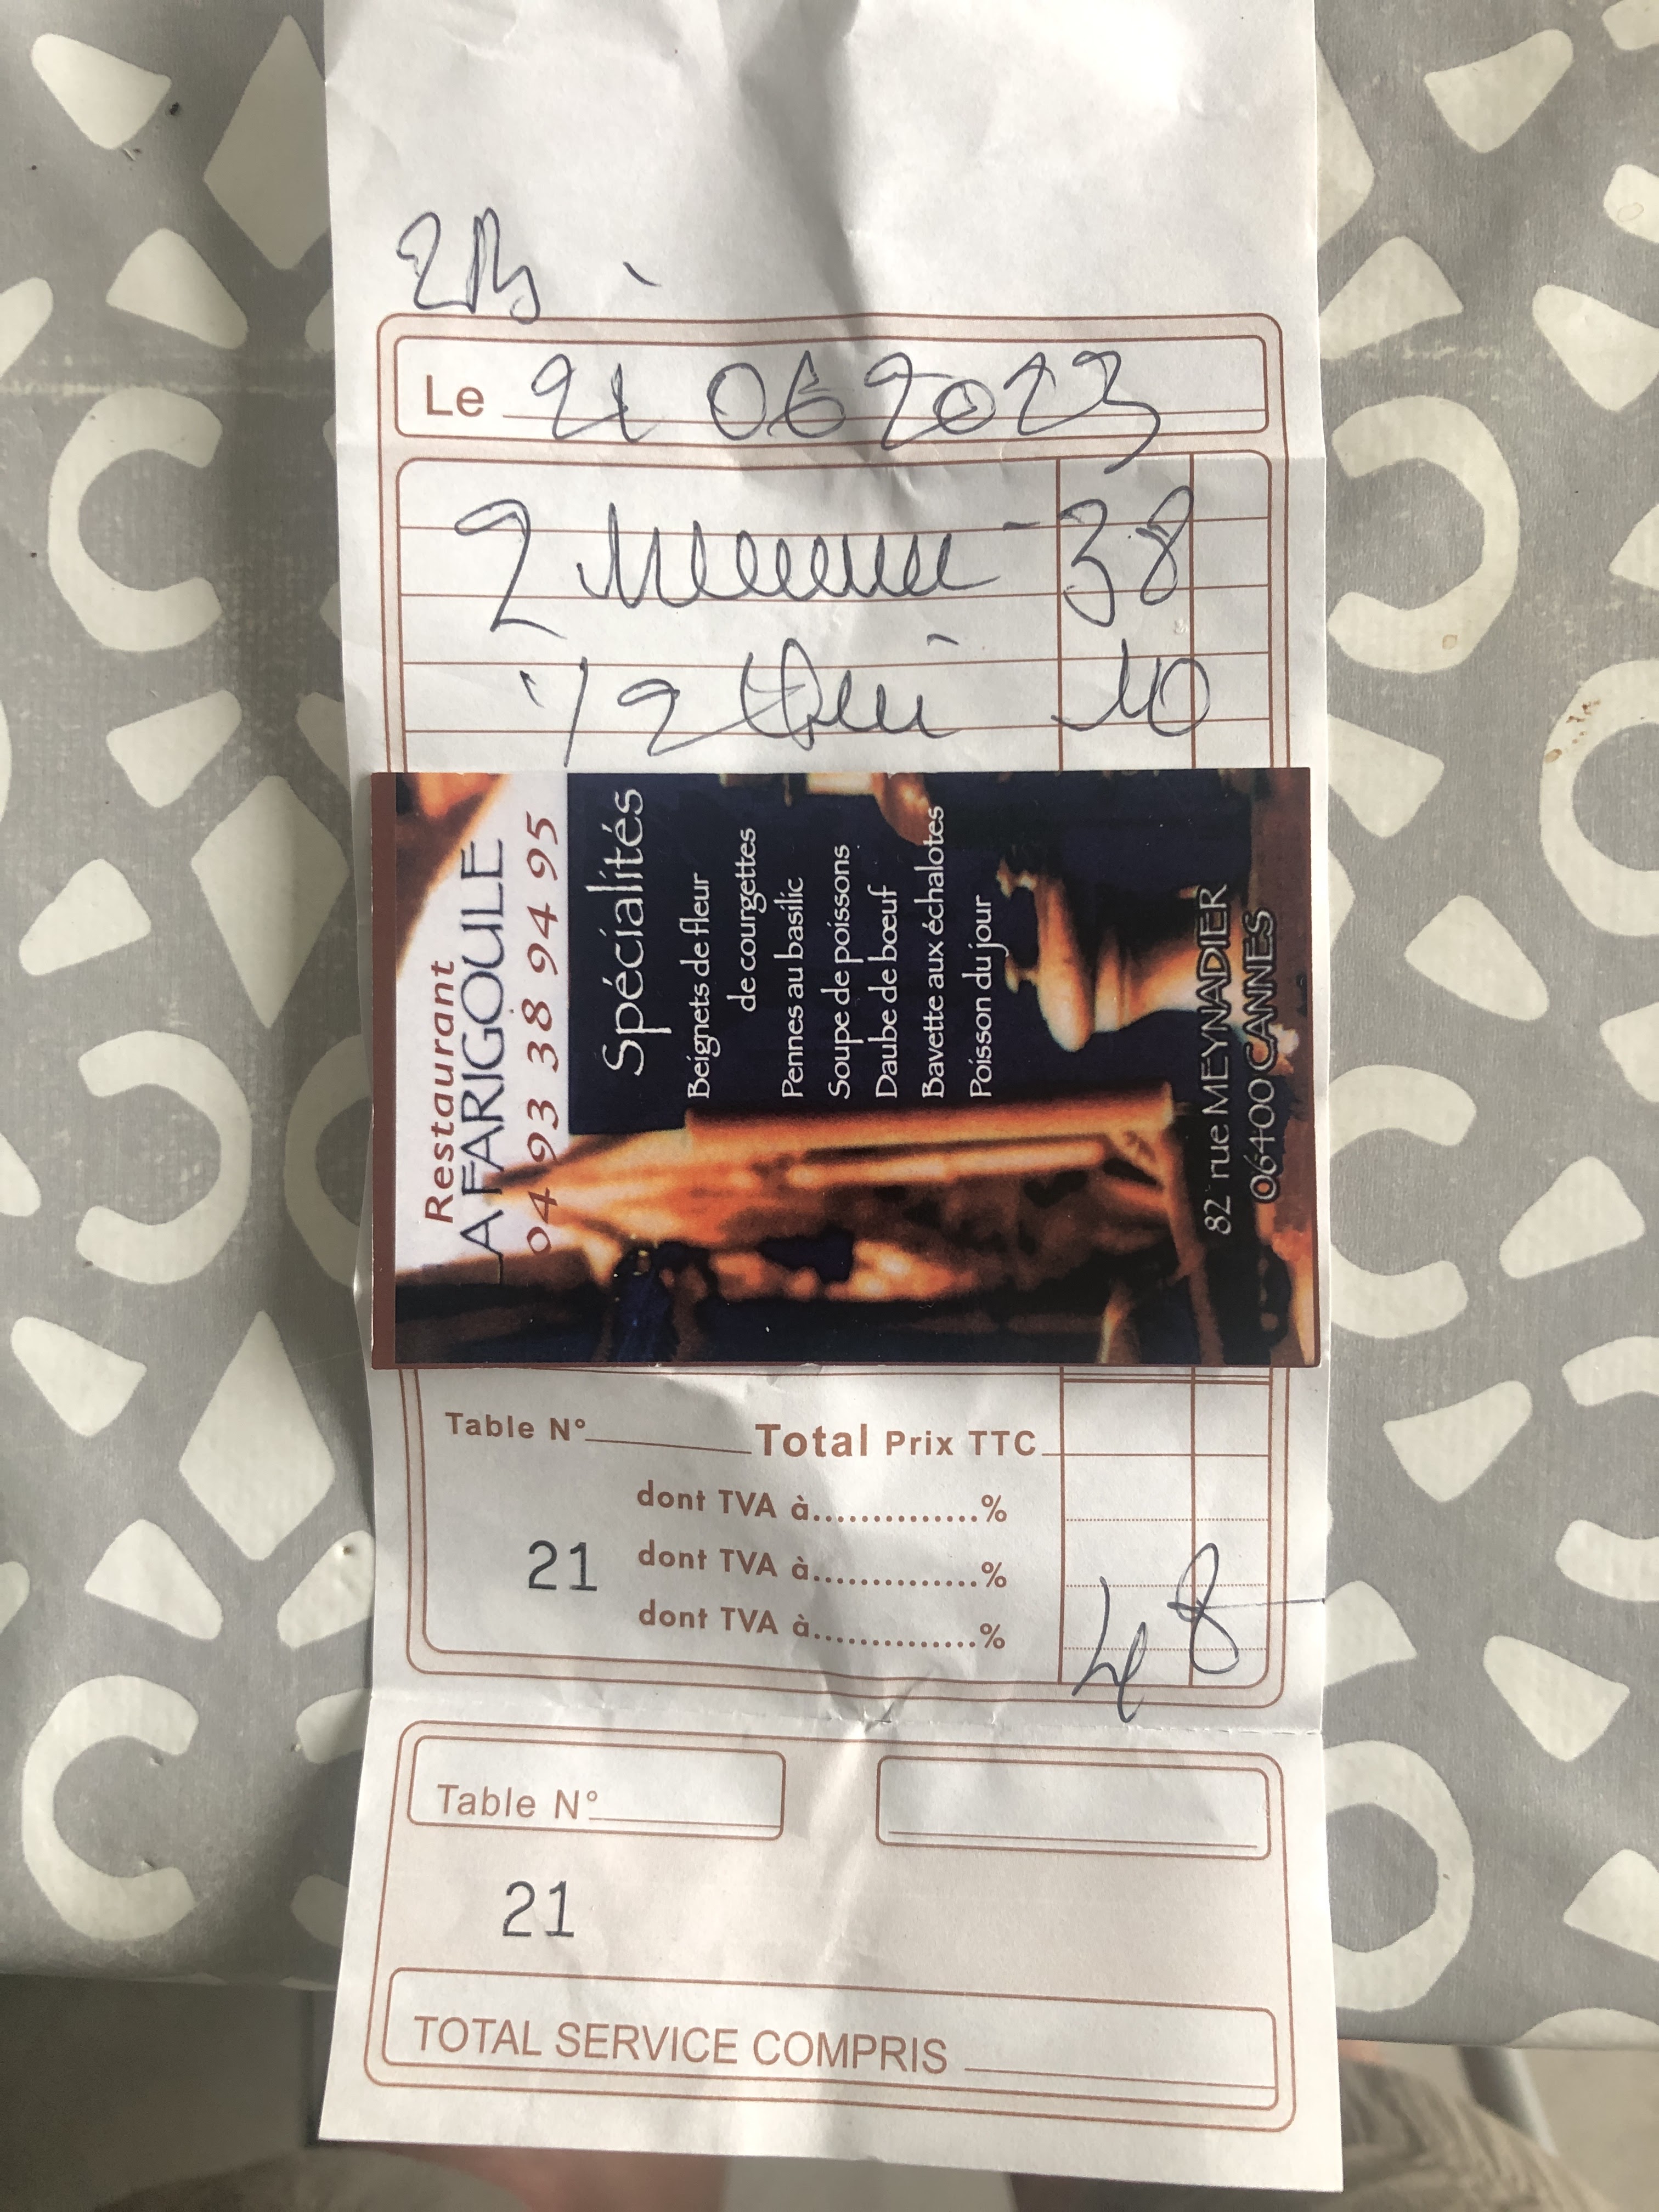 Le 21 06 2023
2 Menu - 38
1/2 10
Restaurant
LA FARIGOULE
04 93 38 94 95
Spécialités
Beignets de fleur
de courgettes
Pennes au basilic
Soupe de poissons
Daube de bœuf
Bavette aux échalotes
Poisson du jour
82 rue MEYNADIER
06400 CANNES
Table N° Total Prix TTC
dont TVA à..............%
21 dont TVA à..............%
dont TVA à..............%
48
Table N°
21
TOTAL SERVICE COMPRIS